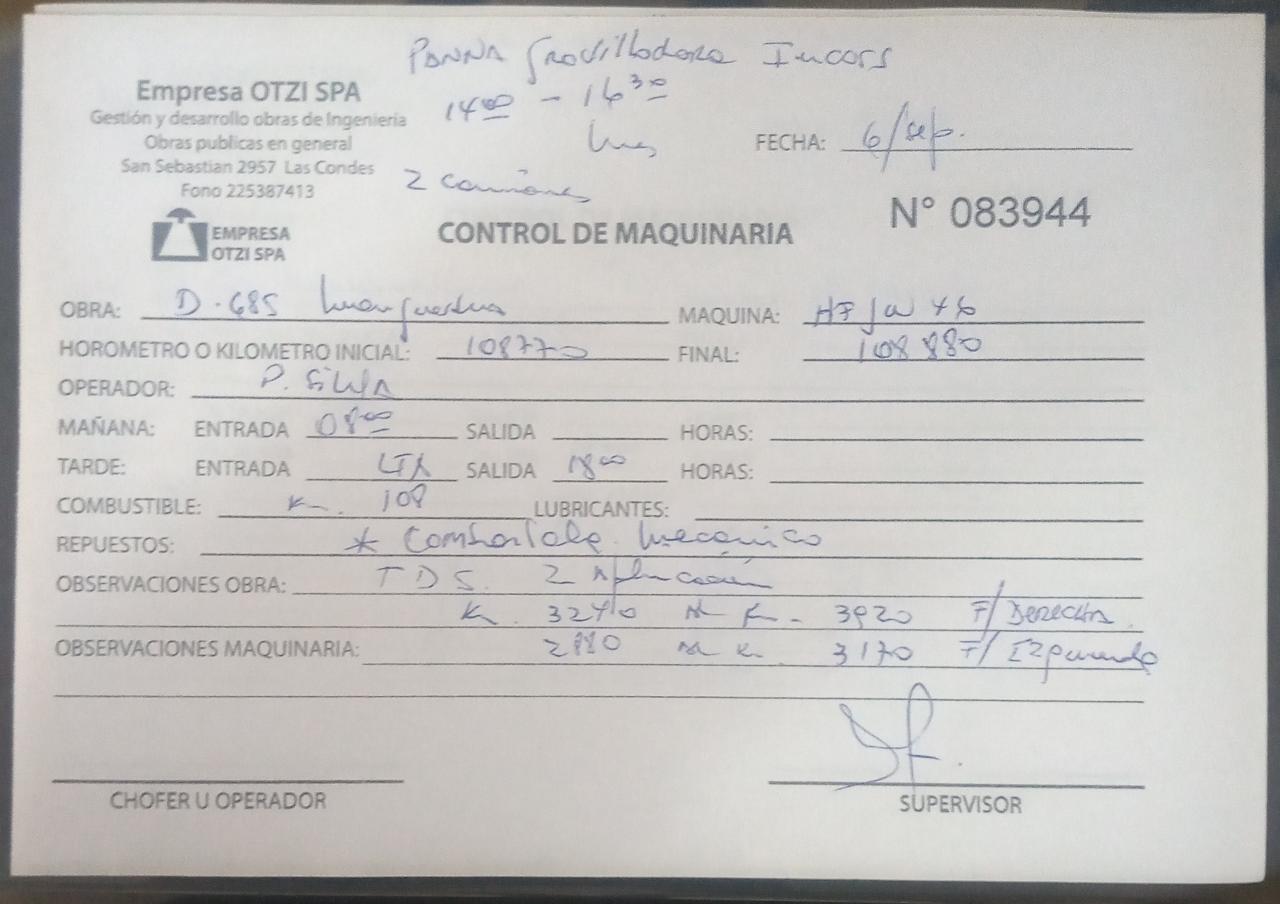 PANNA Gravilladora Incors
Empresa OTZI SPA
14 00 - 16 30
Gestión y desarrollo obras de Ingenieria
Obras publicas en general
hrs
FECHA: 6/sep.
San Sebastian 2957 Las Condes
2 camiones
Fono 225387413
N° 083944
EMPRESA
OTZI SPA
CONTROL DE MAQUINARIA
OBRA: D.685
MAQUINA:
HOROMETRO O KILOMETRO INICIAL: 108770 FINAL: 108 880
OPERADOR: P. SILVA
MAÑANA: ENTRADA 08 00 SALIDA HORAS:
TARDE: ENTRADA SALIDA 18 00 HORAS:
COMBUSTIBLE: K. 108 LUBRICANTES:
REPUESTOS: * mecánico
OBSERVACIONES OBRA: T D S. 2 Aplicación
K. 3240 K. 3920 F/ DERECHA.
OBSERVACIONES MAQUINARIA: 2880 K. 3170 F/ Izquierda
CHOFER U OPERADOR
SUPERVISOR